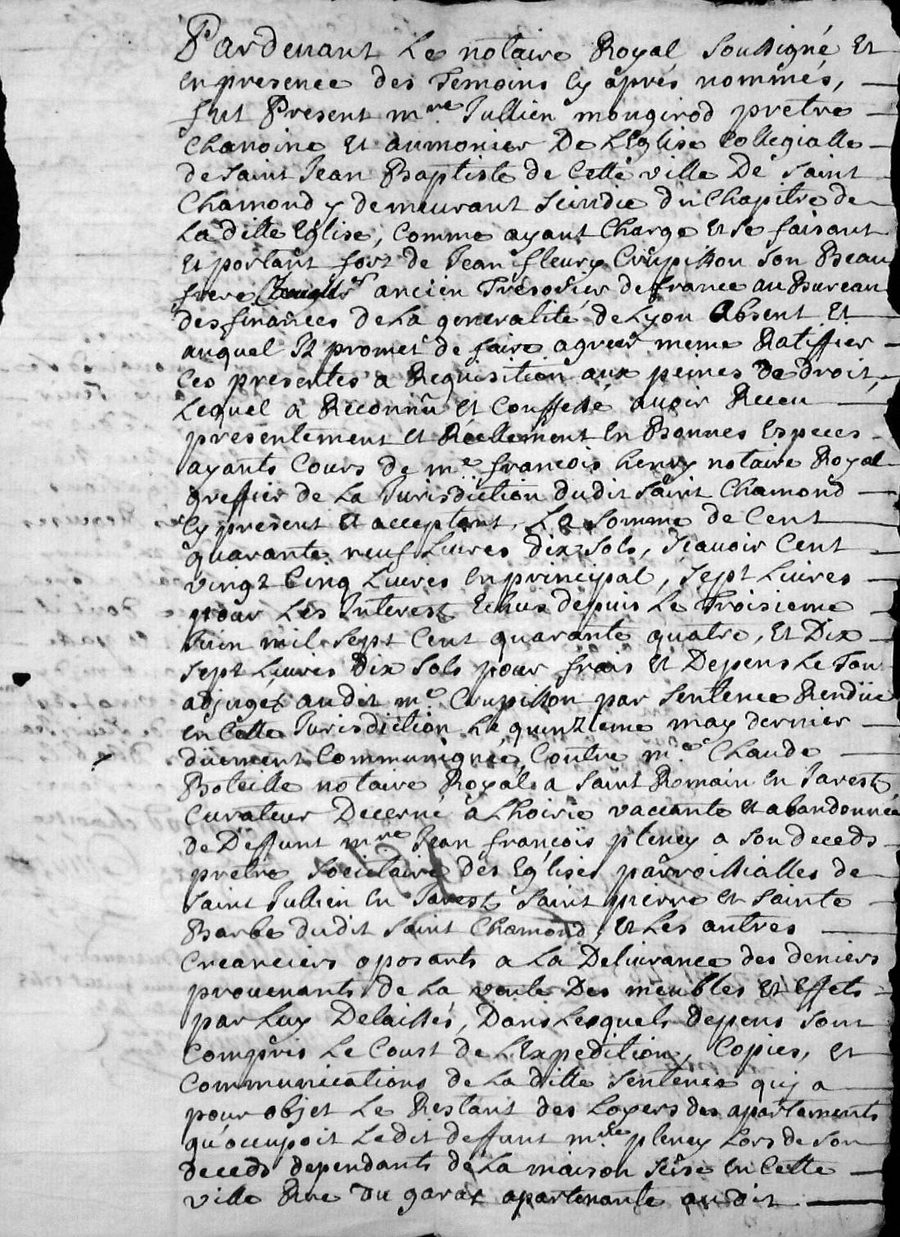 Pardevant Le notaire Royal Soussigné Et
En presence des Temoins Cy aprés nommés,
fut Present m.re Jullien mongirod pretre
Chanoine Et aumonier De L'Eglise Collegialle
de Saint Jean Baptiste de Cette ville De Saint
Chamond y demeurant Scindic du Chapitre de
La ditte Eglise, Comme ayant Charge Et Se faisant
Et portant fort de Jean fleury Crupisson Son Beau
frere ancien Trésorier de france au Bureau
des finances de La generalité de Lyon absent Et
auquel Il promet de faire agreer meme Ratiffier
Ces presentes a Requisition aux peines de droit,
Lequel à Reconnû Et Confessé avoir Receu
presentement Et Réellement En Bonnes Especes
ayants Cours de m.e françois henry notaire Royal
greffier de La Jurisdiction dudit Saint Chamond
Cy present Et acceptant, La Somme de Cent
quarante neuf Livres dix Sols, Scavoir Cent
vingt Cinq Livres En principal, Sept Livres
pour Les Interest Echus depuis Le Troisieme
Juin mil Sept Cent quarante quatre, Et Dix
Sept Livres Dix Sols pour frais Et Depens Le Tout
adjugés audit m.e Crupisson par Sentence Rendüe
en Cette Jurisdiction Le quinzieme may dernier
düement Communiquée, Contre m.e Claude
Boteille notaire Royal a Saint Romain En Jarest
Curateur Decerné à L'hoirie vaccante Et abandonnée
de Deffunt m.re Jean françois pleney a Son deceds
pretre Societaire des Eglises parroissialles de
Saint Jullien En Jarest, Saint pierre Et Sainte
Barbe dudit Saint Chamond, Et Les autres
Creanciers oposants a La Delivrance des deniers
provenants de La vente Des meubles Et Effets
par Luy Delaissés, Dans Lesquels depens Sont
Compris Le Coust de L'Expedition, Copies, Et
Communications de La ditte Sentence qui a
pour objet Le Restant des Loyers des apartements
qu'occupoit Ledit deffunt m.re pleney Lors de Son
deceds dependants de La maison Scise En Cette
ville Rue du garat apartenante audit